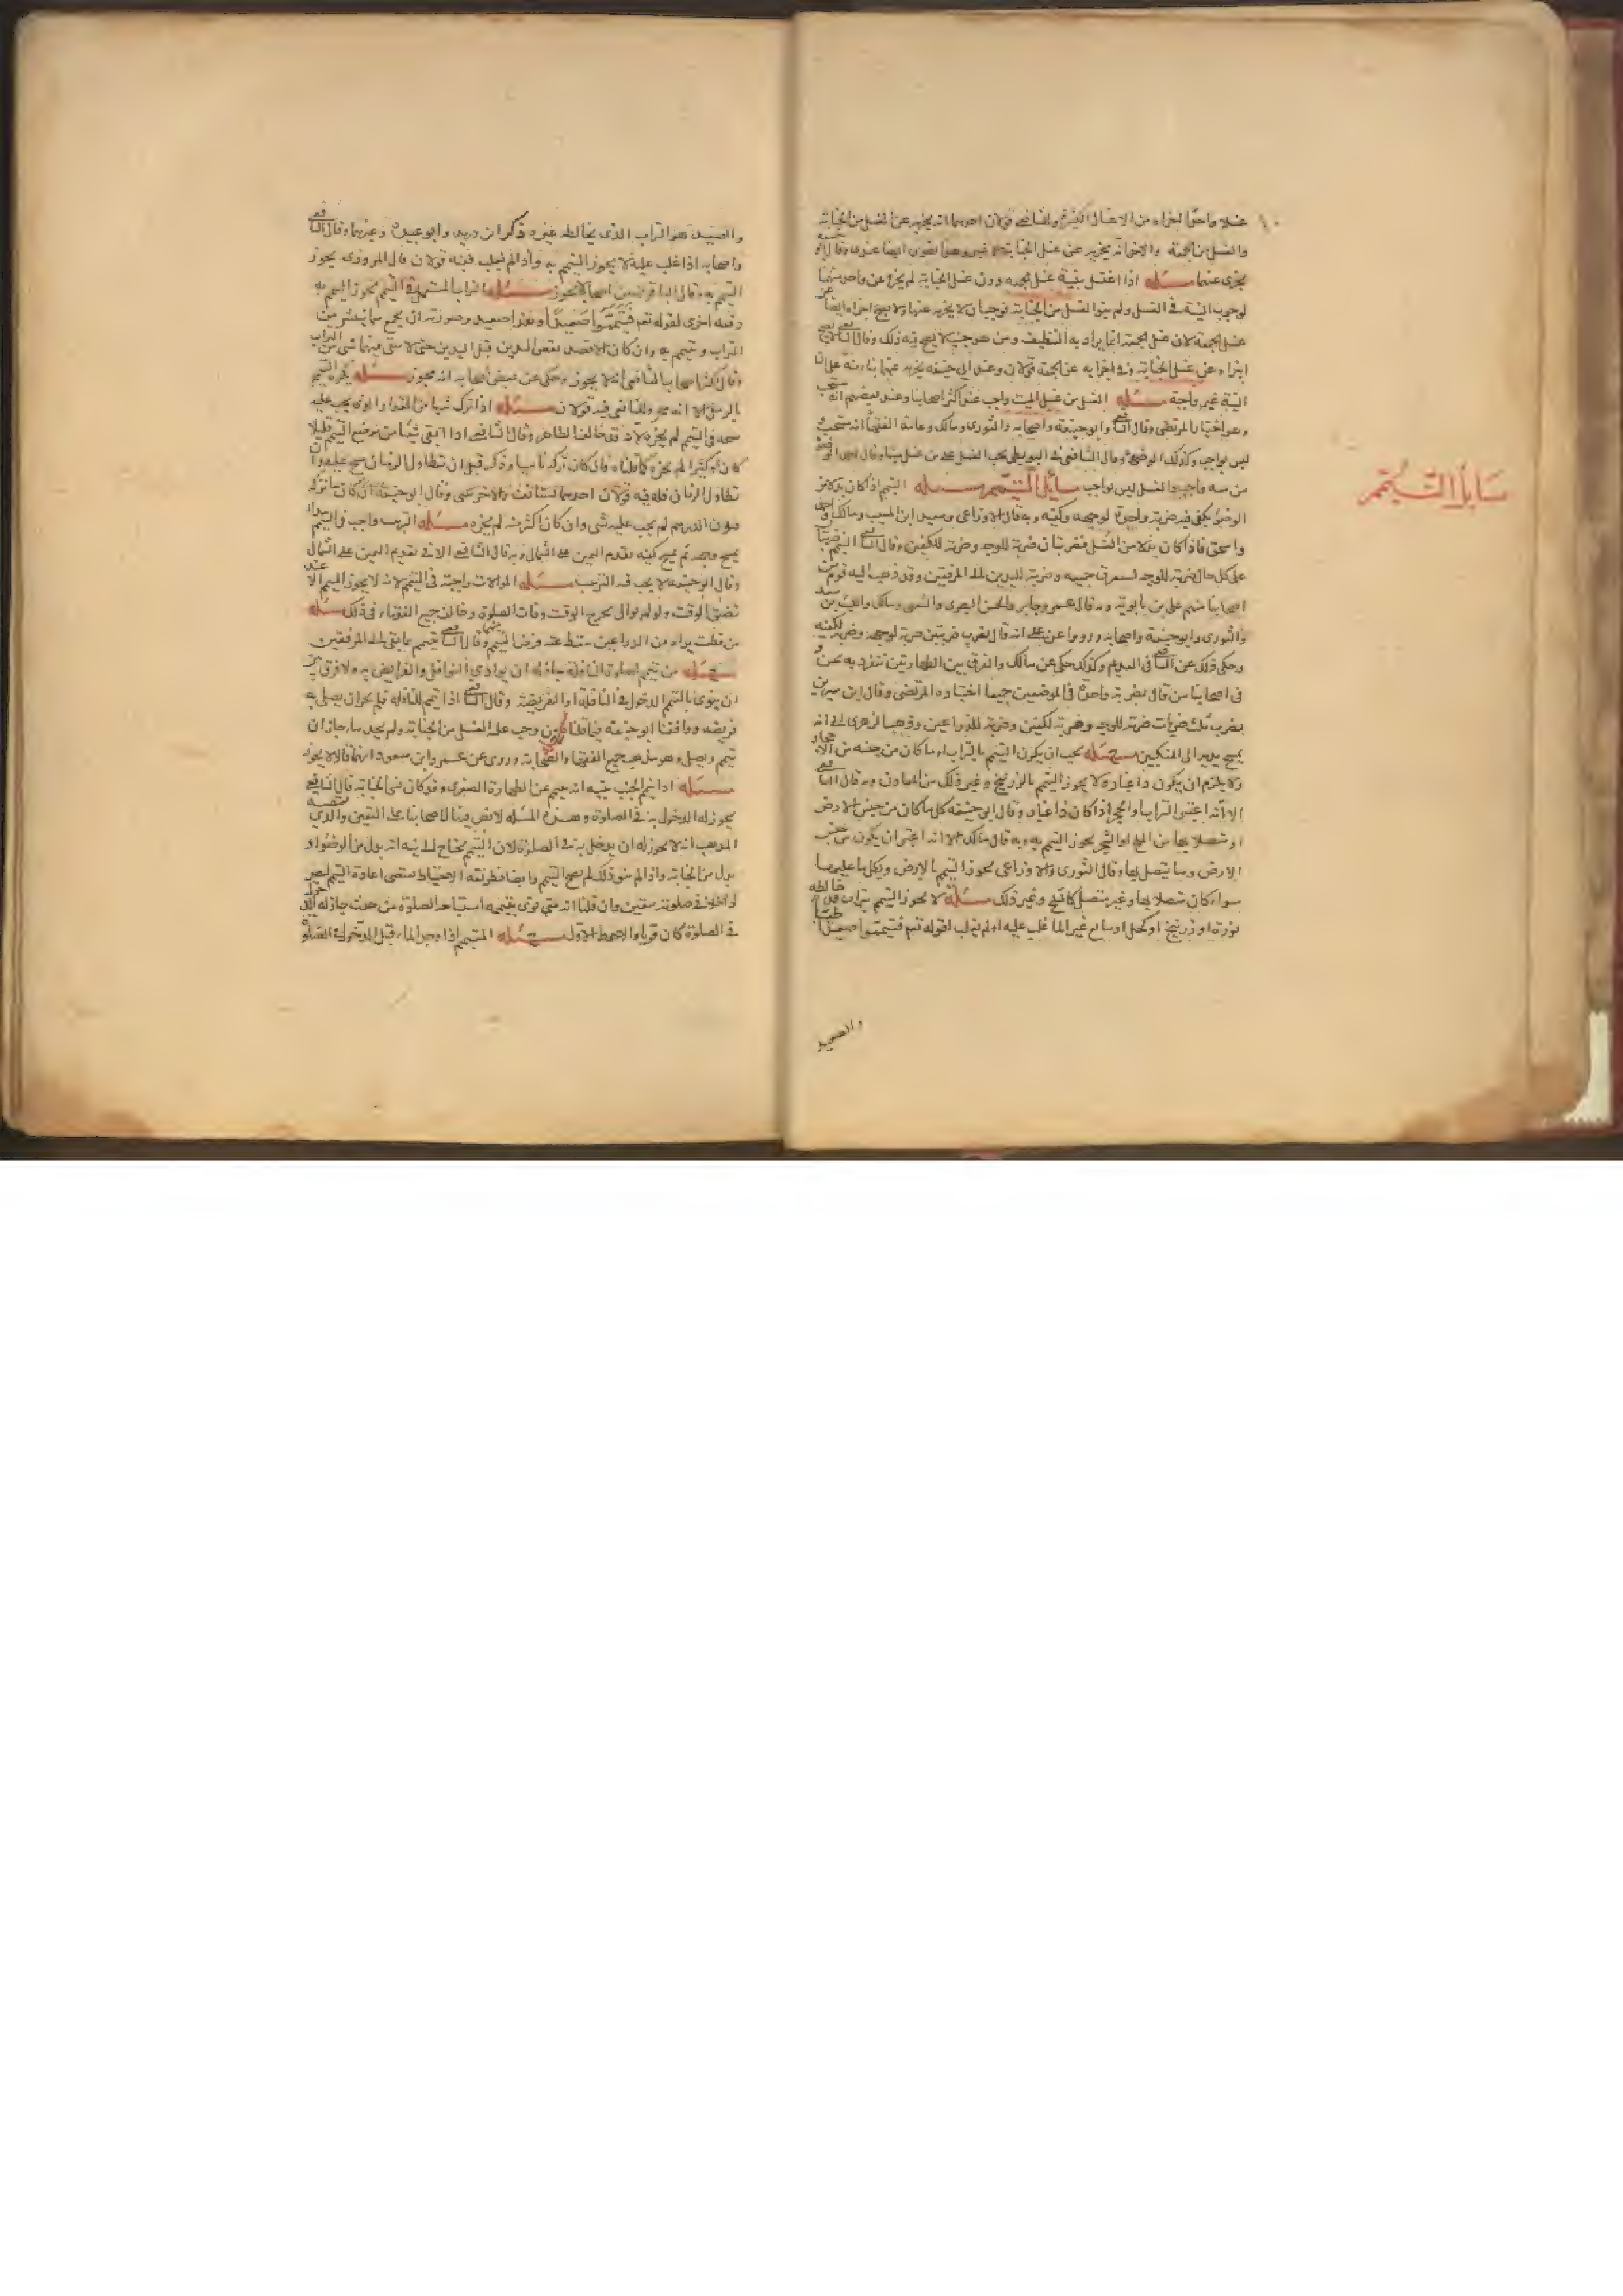 غسلا واحدا اجزاه من الاغسال الكثيرة وللشافعي قولان احدهما انه يجزيه عن الغسل من الجنابة
والغسل من الجمعة والاخر انه يجزيه عن غسل الجنابة لا غير وهذا يقوى ايضا عندى وقال ابو حنيفه
يجزى عنهما مسئله اذا اغتسل بنية غسل الجمعه دون غسل الجنابة لم يجزه عن واحد منهما
لوجوب النية فى الغسل ولم ينو الغسل من الجنابة فوجب ان لا يجزيه عنها ولا يصح اجزاه ايضا عن
غسل الجمعة لان غسل الجمعة انما يراد به التنظيف ومن هو جنب لا يصح فيه ذلك وقال الشافعي لا يجزيه
عن غسل الجنابة وفى اجزايه عن الجمعة قولان وعند ابى حنيفه يجزيه عنهما بناء منه على ان
النية غير واجبة مسئله الغسل من غسل الميت واجب عند اكثر اصحابنا وعند بعضهم انه مستحب
وهو اختيار المرتضى وقال الشافعي وابو حنيفة واصحابه والثورى ومالك وعامة الفقهاء انه مستحب و
ليس بواجب وكذلك الوضوء وقال الشافعى فى البويطى يجب الغسل على من غسل ميتا وقال احمد الوضوء
من مسه واجب والغسل ليس بواجب مسائل التيمم مسئله التيمم اذا كان بدلا من
مسايل التيمم
الوضوء يكفى فيه ضربة واحدة لوجهه وكفيه وبه قال الاوزاعى وسعيد ابن المسيب ومالك واحمد
واسحق فاذا كان بدلا من الغسل فضربتان ضربة للوجه وضربة للكفين وقال الشافعي التيمم ضربتان
على كل حال ضربة للوجه يستغرق جميعه وضربة لليدين الى المرفقين وقد ذهب اليه قوم من
اصحابنا منهم على بن بابويه وبه قال عمر وجابر والحسن البصرى والشعبى ومالك والليث بن سعد
والثورى وابو حنيفة واصحابه ورووا عن على انه قال يضرب ضربتين ضربة لوجهه وضربة لكفيه
وحكى ذلك عن الشافعي فى القديم وكذلك حكى عن مالك والفرق بين الطهارتين تنفرد به نحن و
فى اصحابنا من قال بضربة واحدة فى الموضعين جميعا اختاره المرتضى وقال ابن سيرين
يضرب ثلث ضربات ضربة للوجه وضربة لكفين وضربة للذراعين وذهب الزهرى الى انه
يمسح يديه الى المنكبين مسئله يجب ان يكون التيمم بالتراب او ما كان من جنسه من الاحجار
ولا يلزم ان يكون ذا غبار ولا يجوز التيمم بالزرنيخ وغير ذلك من المعادن وبه قال الشافعي
الا انه اعتبر التراب او الحجر اذا كان ذا غبار وقال ابو حنيفه كلما كان من جنس الارض
او متصلا بها من الملح او الشجر يجوز التيمم به وبه قال مالك الا انه اعتبر ان يكون من جنس
الارض وما يتصل بها وقال الثورى والاوزاعى يجوز التيمم بالارض وبكل ما عليها
سواء كان متصلا بها وغير متصل كالثلج وغير ذلك مسئلة لا يجوز التيمم بتراب قد خالطه
نورة او زرنيخ او كحل او مايع غير الماء غلب عليه او لم يغلب لقوله تعم فتيمموا صعيدا طيبا
والصعيد
والصعيد هو التراب الذى يخالطه غيره ذكر ابن دريد وابو عبيدة وغيرهما وقال الشافعي
واصحابه اذا غلب عليه لا يجوز التيمم به واذا لم يغلب فيه قولان قال المروزى يجوز
التيمم به وقال الباقون من اصحابه لا يجوز مسئله التراب المستعمل فى التيمم يجوز التيمم به
دفعه اخرى لقوله تعم فتيمموا صعيدا وهذا صعيد وصورته ان يجمع ما ينتثر من
التراب ويتيمم به وان كان الافضل نفض اليدين قبل اليدين حتى لا يبقى فيهما شى من التراب
وقال اكثر اصحاب الشافعى انه لا يجوز وحكى عن بعض اصحابه انه يجوز مسئله يكره التيمم
بالرمل الا انه يجزى وللشافعى فيه قولان مسئله اذا ترك شيا من المقدار الذى يجب عليه
مسحه فى التيمم لم يجزه لانه قد خالف الظاهر وقال الشافعى اذا ابقى شيئا من موضع التيمم قليلا
كان او كثيرا لم يجزه كما قلناه وان كان تركه ناسيا وذكر قبل ان تطاول الزمان مسح عليه وان
تطاول الزمان فله فيه قولان احدهما يستانف والاخر يبنى وقال ابو حنيفة ان كان ما تركه
دون الدرهم لم يجب عليه شى وان كان اكثر منه لم يجزه مسئله الترتيب واجب فى التيمم يبدا
يمسح وجهه ثم يمسح كفيه يقدم اليمين على الشمال وبه قال الشافعى الا فى تقديم اليمين على الشمال
وقال ابو حنيفه لا يجب فيه الترتيب مسئله الموالات واجبة فى التيمم لانه لا يجوز التيمم الا عند
تضيق الوقت ولو لم يوال لخرج الوقت وفات الصلوة وخالف جميع الفقهاء فى ذلك مسئله
من قطعت يداه من الذراعين سقط عنه فرض التيمم فيهما وقال الشافعي يتيمم بما بقى الى المرفقين
مسئله من تيمم لصلوة النافلة جاز له ان يودى النوافل والفرايض به ولا فرق بين
ان ينوى بالتيمم الدخول فى النافلة او الفريضة وقال الشافعي اذا تيمم للنافله فلم يجز ان يصلى به
فريضه ووافقنا ابو حنيفة فيما قلناه من وجب عليه الغسل من الجنابة ولم يجد ماء جاز ان
يتيمم ويصلى وهو مذهب جميع الفقها والصحابه وروى عن عمر وابن مسعود انهما قالا لا يجوز
مسئله اذا تيمم الجنب بنية انه يتيمم عن الطهارة الصغرى وقد كان نسى الجنابة قال الشافعى
يجوز له الدخول به فى الصلوة وهذه المسئله لا نص فيها لاصحابنا على التعيين والذى يقتضيه
المذهب انه لا يجوز له ان يدخل به فى الصلوة لان التيمم يحتاج الى نية انه بدل من الوضوء او
بدل من الجنابة واذا لم ينو ذلك لم يصح التيمم وايضا فطريقه الاحتياط يقتضى اعادة التيمم
فى صلوته بيقين وان قلنا انه متى نوى بتيممه استباحة الصلوة من حدث جاز له الدخول
فى الصلوة كان قويا والاحوط الاول مسئله المتيمم اذا وجد الماء قبل الدخول فى الصلوة